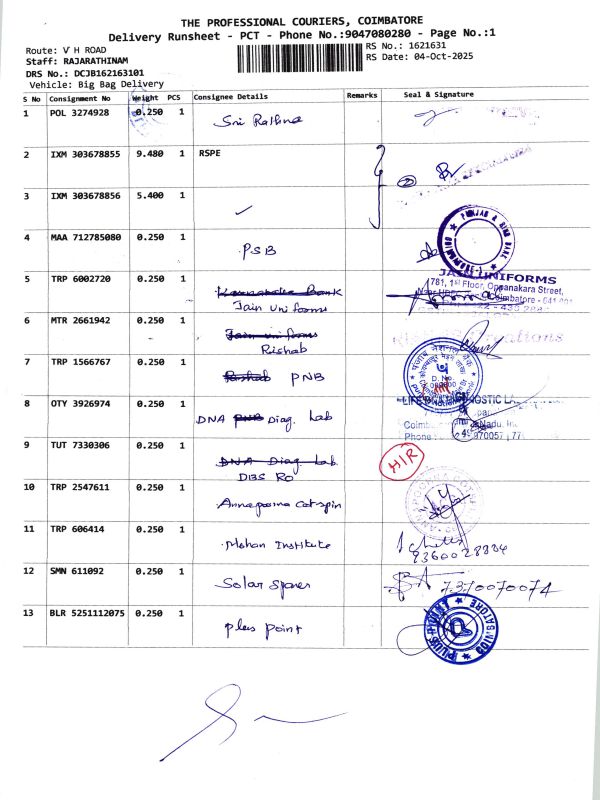 THE PROFESSIONAL COURIERS, COIMBATORE
Delivery Runsheet - PCT - Phone No.:9047080280 - Page No.:1
Route: V H ROAD
RS No.: 1621631
Staff: RAJARATHINAM
RS Date: 04-Oct-2025
DRS No.: DCJB162163101
Vehicle: Big Bag Delivery
S No Consignment No Weight PCS Consignee Details Remarks Seal & Signature
1 POL 3274928 0.250 1 Sri Rathna
2 IXM 303678855 9.480 1 RSPE
3 IXM 303678856 5.400 1
4 MAA 712785080 0.250 1 PSB
PUNJAB & SIND BANK
5 TRP 6002720 0.250 1 Bank
Jain Uniforms
JAIN UNIFORMS
781, 1st Floor, Oppanakara Street,
Coimbatore - 641 001
6 MTR 2661942 0.250 1 Jain Uniforms
Rishab
7 TRP 1566767 0.250 1 Rishab PNB
8 OTY 3926974 0.250 1 DNA PNB Diag. Lab
Phone :
9 TUT 7330306 0.250 1 DNA Diag. Lab
DIBS RO
HIR
10 TRP 2547611 0.250 1 Annapoorna Cotspin
11 TRP 606414 0.250 1 Mohan Institute
9360028884
12 SMN 611092 0.250 1 Solar Spares
7370070074
13 BLR 5251112075 0.250 1 plus point